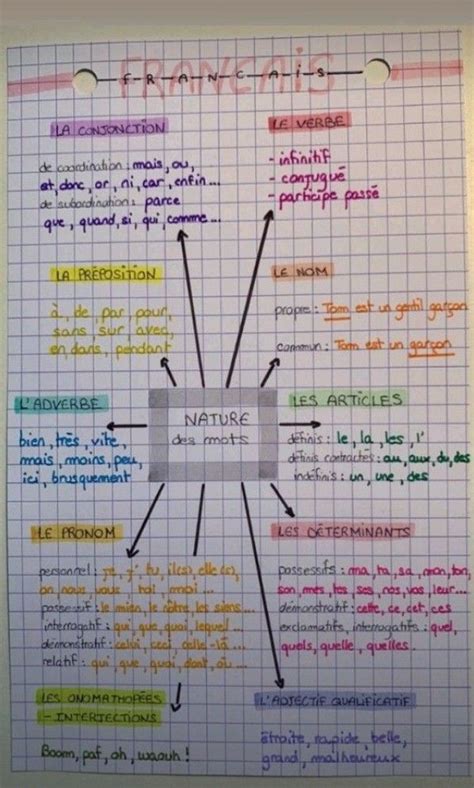 FRANCAIS
F-R-A-N-C-A-i-S
LA CONJONCTION
de coordination : mais, ou,
et, donc, or, ni, car, enfin...
de subordination : parce
que, quand, si, qui, comme...
LE VERBE
- infinitif
- conjugué
- participe passé
LA PRÉPOSITION
à, de, par, pour,
sans, sur, avec,
en, dans, pendant
LE NOM
propre : Tom est un gentil garçon
commun : Tom est un garçon
L'ADVERBE
bien, très, vite,
mais, moins, peu,
ici, brusquement
NATURE
des mots
LES ARTICLES
définis : le, la, les, l'
définis contractés : au, aux, du, des
indéfinis : un, une, des
LE PRONOM
personnel : je, j', tu, il(s), elle(s),
on, nous, vous, toi, moi...
possessif : le mien, le nôtre, les siens...
interrogatif : qui, que, quoi, lequel...
démonstratif : celui, ceci, celle-là...
relatif : qui, que, quoi, dont, où...
LES DÉTERMINANTS
possessifs : ma, ta, sa, mon, ton,
son, mes, tes, ses, nos, vos, leur...
démonstratif : cette, ce, cet, ces
exclamatifs, interrogatifs : quel,
quels, quelle, quelles.
LES ONOMATHOPÉES
- INTERJECTIONS
Boom, paf, oh, waouh !
L'ADJECTIF QUALIFICATIF
étroite, rapide, belle,
grand, malheureux